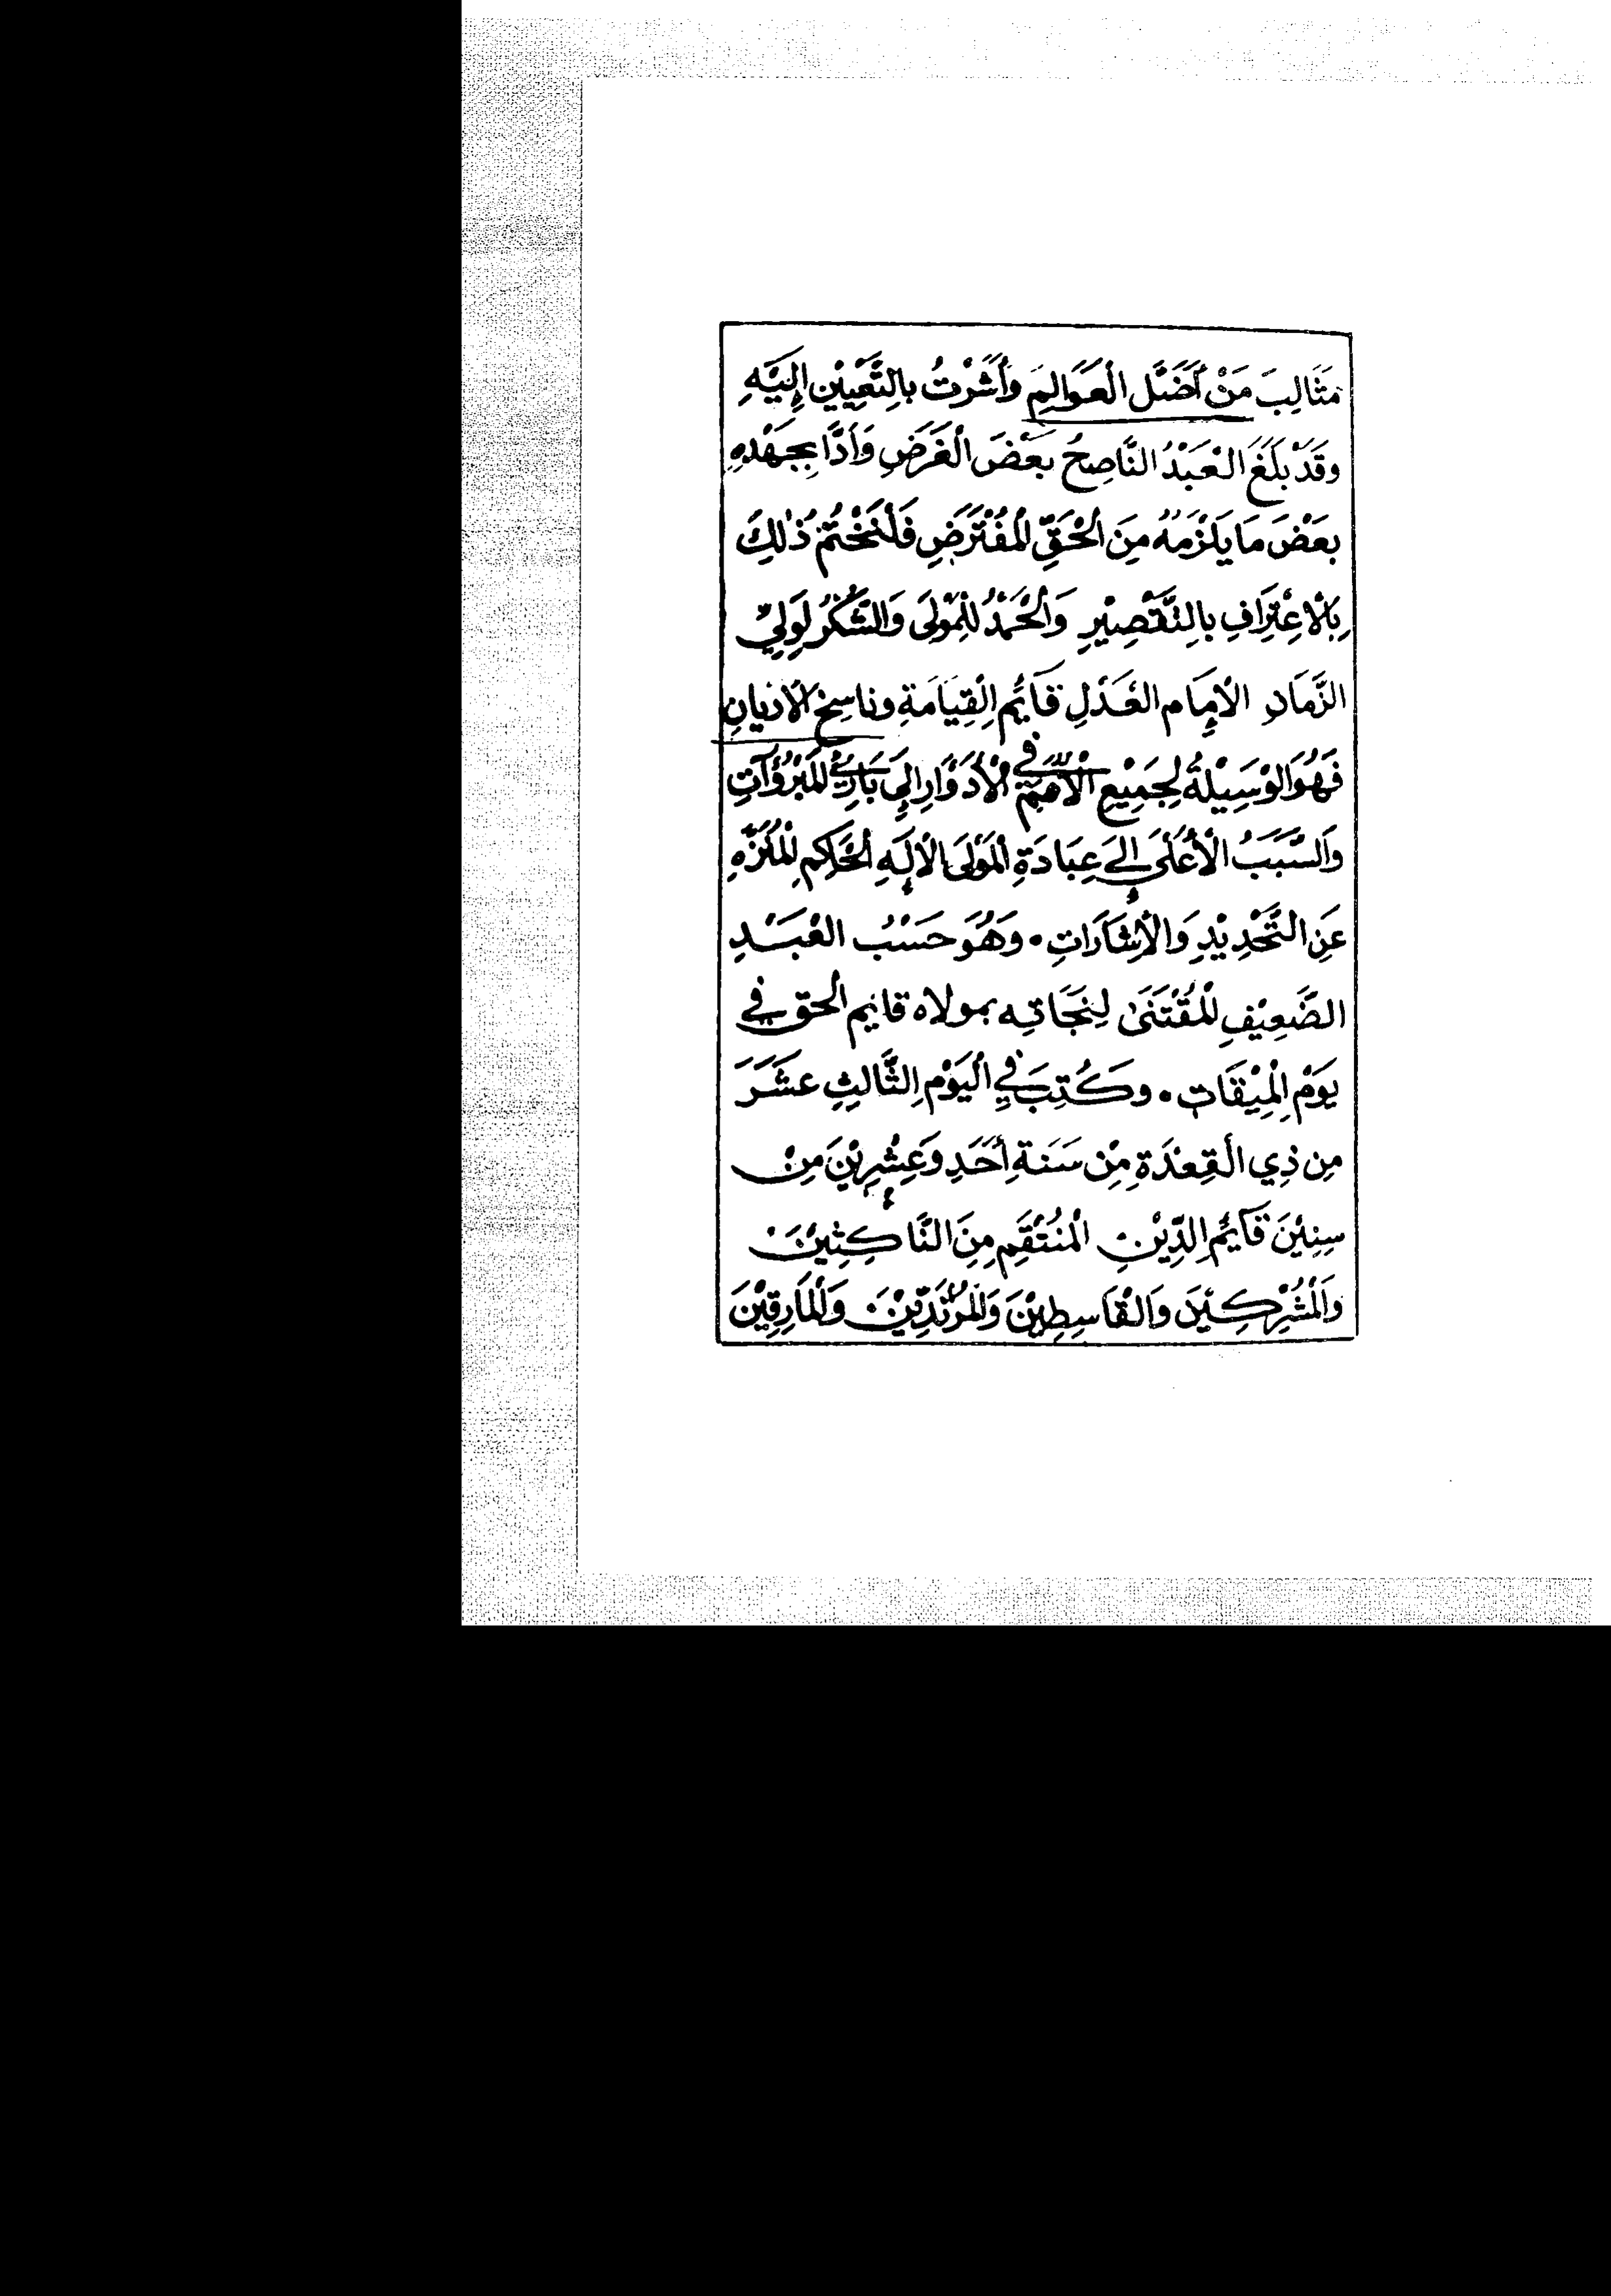 مَثَالِبَ مَنْ أَضَلَّ الْعَوَالِمَ وَأَشَرْتُ بِالتَّعْيِيْنِ إِلَيْهِ
وَقَدْ بَلَغَ الْعَبْدُ النَّاصِحُ بَعْضَ الْغَرَضِ وَأَدَّا بِجَهْدِهِ
بَعْضَ مَا يَلْزَمُهُ مِنَ الْحَقِّ الْمُفْتَرَضِ فَلْنَخْتُمْ ذٰلِكَ
بِالْاعْتِرَافِ بِالتَّقْصِيْرِ وَالْحَمْدُ لِلْمَوْلَى وَالشُّكْرُ لِوَلِيِّ
الزَّمَانِ الْإِمَامِ الْعَدْلِ قَآيِمِ الْقِيَامَةِ وناسِخِ الْأَدْيَانِ
فَهُوَ الْوَسِيْلَةُ لِجَمِيْعِ الْأُمَمِ فِي الْأَدْوَارِ إِلَى بَارِئِ الْمَبْرُوْآتِ
وَالسَّبَبُ الْأَعْلَى إِلَى عِبَادَةِ الْمَوْلَى الْإِلَهِ الْحَاكِمِ الْمُنَزَّهِ
عَنِ التَّحْدِيْدِ وَالْإِشَارَاتِ • وَهُوَ حَسْبُ الْعَبْدِ
الضَّعِيْفِ الْمُقْتَنَىٰ لِنَجَاتِه بمولاه قايم الحق في
يَوْمِ الْمِيْقَاتِ • وَكُتِبَ فِي الْيَوْمِ الثَّالِثِ عَشَرَ
مِن ذِي الْقِعْدَةِ مِنْ سَنَةِ أَحَدِ وَعِشْرِيْنَ مِنْ
سِنِيْنَ قَآيِمِ الدِّيْنِ الْمُنْتَقِمِ مِنَ النَّاكِثِيْنَ
وَالْمُشْرِكِيْنَ وَالْقَاسِطِيْنَ وَالْمُرْتَدِّيْنَ وَالْمَارِقِيْنَ